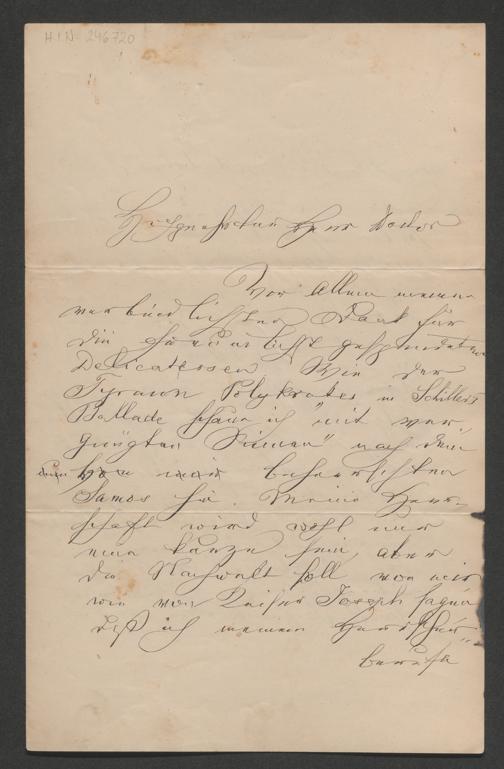 H.I.N. 246720
Hochgeehrter Herr Doctor
Vor Allem meinen
verbindlichsten Dank für
die freundlichst gespendeten
Delicatessen. Wie der
Tyrann Polykrates in Schillers
Ballade schaue ich "mit ver-
gnügten Sinnen" nach dem
von mir beherrschten
Samos hin. Meine Herr-
schaft wird wohl nur
eine kurze sein, aber
die Nachwelt soll von mir
wie von Kaiser Joseph sagen
daß ich meinem Herrscher
berufe